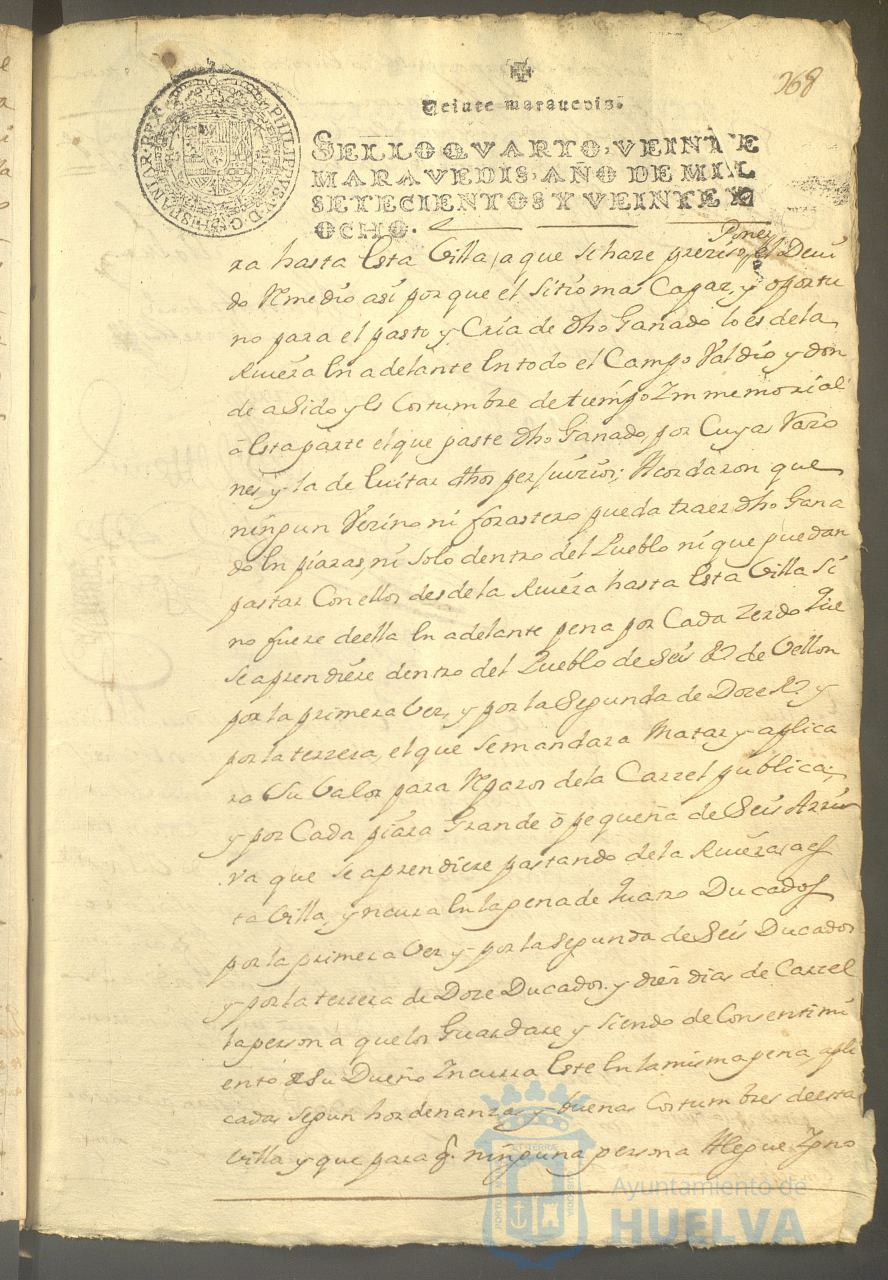 368
Veinte marauedis.
SELLO QVARTO, VEINTE
MARAVEDIS, AÑO DE MIL
SETECIENTOS Y VEINTE Y
OCHO.
PHILIPPVS V D G HISPANIAR REX
Poner
ra hasta Esta Villa, a que se haze prezisso, el Deui
do Remedio asi porque el sitio mas Capaz y oportu
no para el pasto y Cria de dho Ganado lo es de la
Riuera En adelante En todo el Campo Valdio y don
de a Sido y Es Costumbre de tiempo Immemorial
à Esta parte el que paste dho Ganado por Cuyas Razo
nes, y la de Euitar dhos perjuizios; Acordaron que
ningun Vezino ni forastero pueda traer dho Gana
do En piaras, ni Solo dentro del Pueblo ni que puedan
pastar Con ellos desde la Riuera hasta Esta Villa Si
no fuere de ella En adelante pena por Cada Zerdo Que
se aprendiere dentro del Pueblo de Seis Rs de Vellon
por la primera Vez, y por la Segunda de Doze Rs y
por la terzera, el que se mandara Matar y aplica
ra Su Valor para Reparos de la Carzel publica;
y por Cada piara Grande ô pequeña de Seis Arri
va que se aprendiere pastando de la Riuera a es
ta Villa, yncurra En la pena de Quatro Ducados
por la primera Vez y por la Segunda de Seis Ducados
y por la terzera de Doze Ducados. y diez dias de Carzel
la persona que los Guardare y siendo de Consentimi
ento de Su Dueño Incurra Este En la misma pena, apli
cadas segun hordenanza y buenas Costumbres de esta
Villa y que para q. ninguna persona Alegue Igno
PORTUS MARIS ET TERRÆ CUSTODIA
Ayuntamiento de
HUELVA